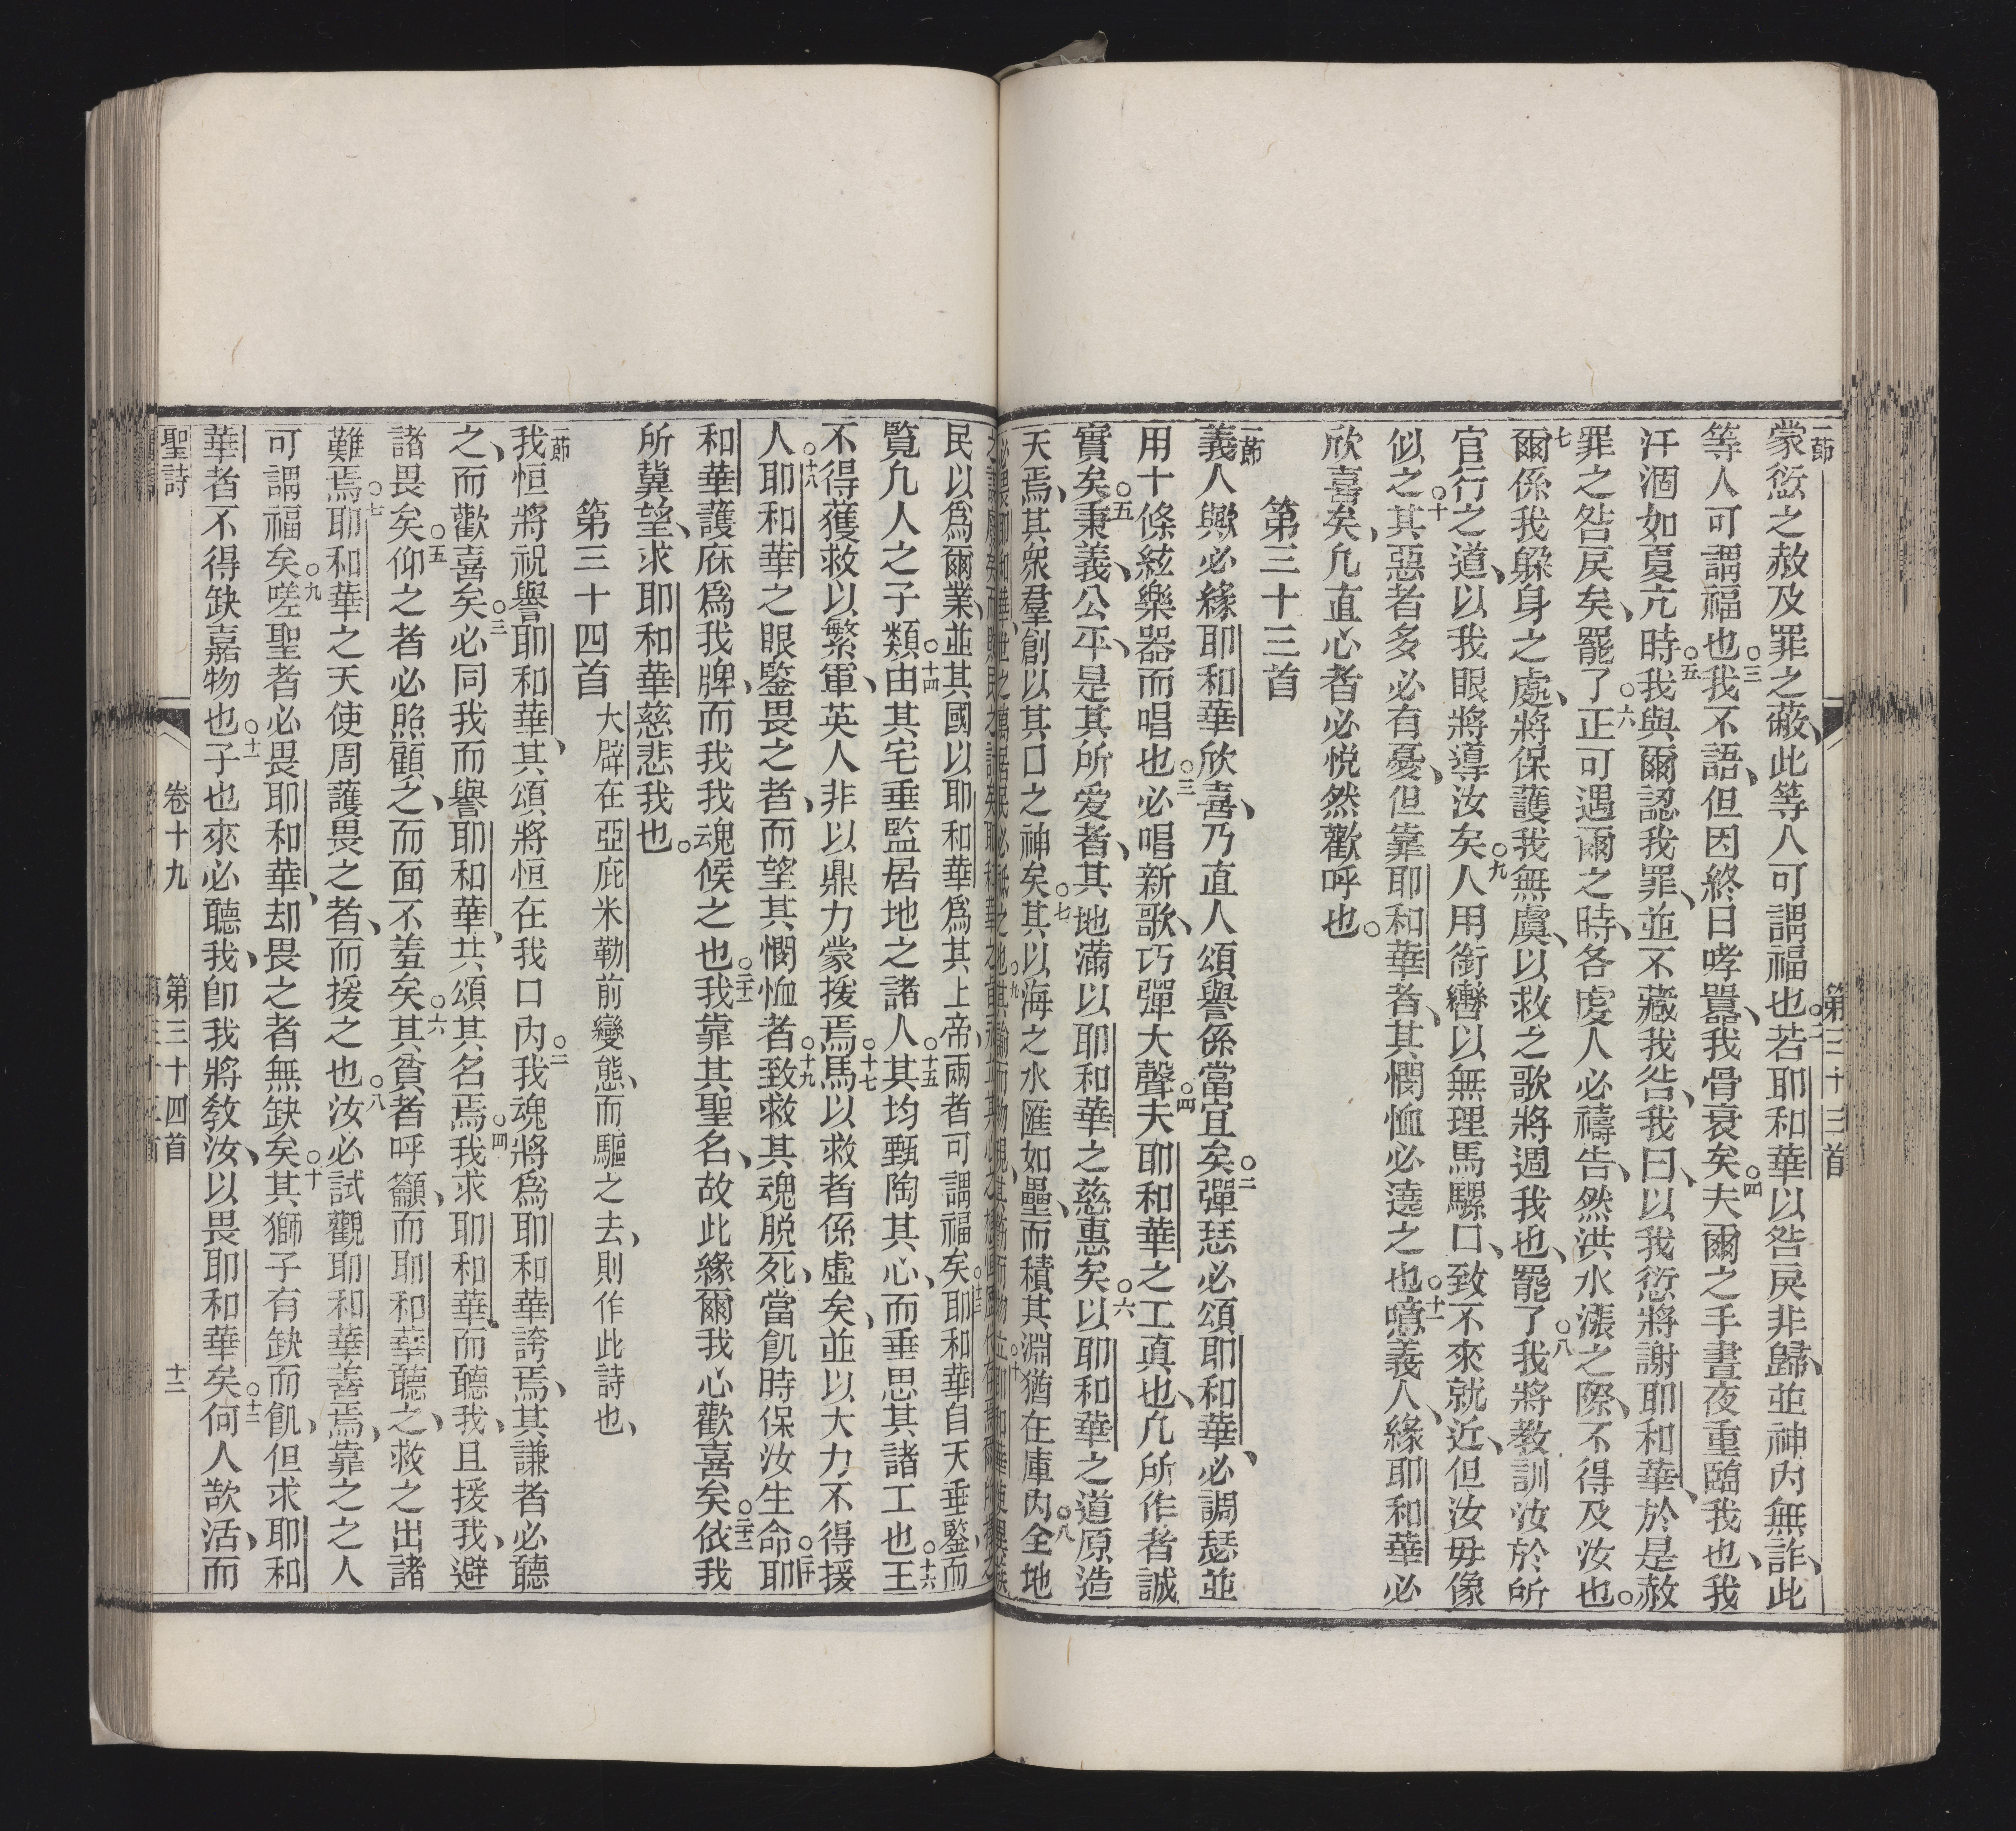 第三十三首
一節
蒙愆之赦及罪之蔽、此等人可謂福也○二若耶和華以咎戾非歸、並神內無詐、此
等人可謂福也○三我不語、但因終日哮嚣、我骨衰矣○四夫爾之手晝夜重臨我也、我
汗涸如夏亢時○五我與爾認我罪、並不藏我咎、我曰、以我愆將謝耶和華、於是赦
罪之咎戾矣、罷了○六正可遇爾之時、各虔人必禱告、然洪水漲之際、不得及汝也○
七爾係我躲身之處、將保護我無虞、以救之歌將週我也、罷了○八我將教訓汝於所
宜行之道、以我眼將導汝矣○九人用銜轡以無理馬騾口、致不來就近、但汝毋像
似之○十其惡者多必有憂、但靠耶和華者、其憫恤必遶之也○十一噫義人、緣耶和華必
欣喜矣、凡直心者必悅然歡呼也○
第三十三首
一節
義人歟必緣耶和華欣喜、乃直人頌譽係當宜矣○二彈瑟必頌耶和華、必調瑟並
用十條絃樂器而唱也○三必唱新歌、巧彈大聲○四夫耶和華之工真也、凡所作者誠
實矣○五秉義、公平、是其所愛者、其地滿以耶和華之慈惠矣○六以耶和華之道原造
天焉、其衆羣創以其口之神矣○七其以海之水匯如壘、而積其淵猶在庫內○八全地
必畏耶和華、世之萬居民必祗之也○九其諭而物現、其飭而物立○十耶和華使異族
民以爲爾業、並其國以耶和華爲其上帝、兩者可謂福矣○十三耶和華自天垂鑒、而
覧凡人之子類○十四由其宅垂監居地之諸人○十五其均甄陶其心、而垂思其諸工也○十六王
不得獲救以繁軍、英人非以鼎力蒙援焉○十七馬以救者係虛矣、並以大力不得援
人○十八耶和華之眼鑒畏之者、而望其憫恤者○十九致救其魂脫死、當飢時保汝生命○二十耶
和華護庥爲我牌、而我我魂候之也○二十一我靠其聖名、故此緣爾我心歡喜矣○二十二依我
所冀望、求耶和華慈悲我也○
第三十四首 大辟在亞庇米勒前變態、而驅之去、則作此詩也、
一節
我恒將祝譽耶和華、其頌將恒在我口內○二我魂將爲耶和華誇焉、其謙者必聽
之、而歡喜矣○三必同我而譽耶和華、共頌其名焉○四我求耶和華、而聽我、且援我、避
諸畏矣○五仰之者必照顧之、而面不羞矣○六其貧者呼籲、而耶和華聽之、救之出諸
難焉○七耶和華之天使周護畏之者、而援之也○八汝必試觀耶和華善焉、靠之之人
可謂福矣○九嗟聖者必畏耶和華、却畏之者無缺矣○十其獅子有缺而飢、但求耶和
華者不得缺嘉物也○十一子也來必聽我、卽我將教汝、以畏耶和華矣○十二何人歆活、而
聖詩 卷十九 第三十四首 十二